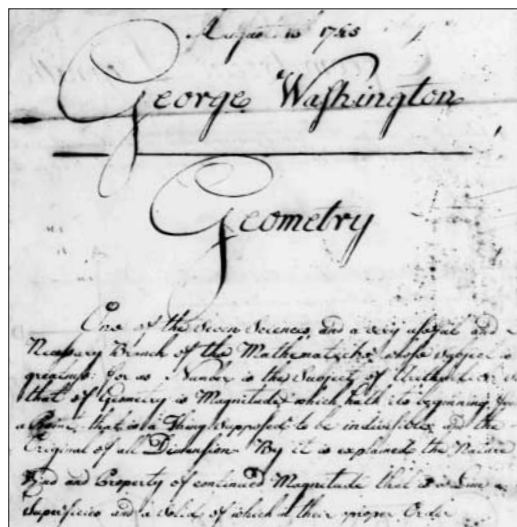 August 13 1745
George Washington
Geometry
One of the Seven Sciences and a very useful and
Necessary Branch of the Mathematicks whose Subject is
greatness: for as Number is the Subject of Arithmetick, so
that of Geometry is Magnitude which hath its beginning from
a Point that is a thing supposed to be indivisible and the
Original of all Dimension By it is explained the Nature
Kind and Property of continued Magnitude that is a Line a
Superficies and a Solid of which in their proper Order